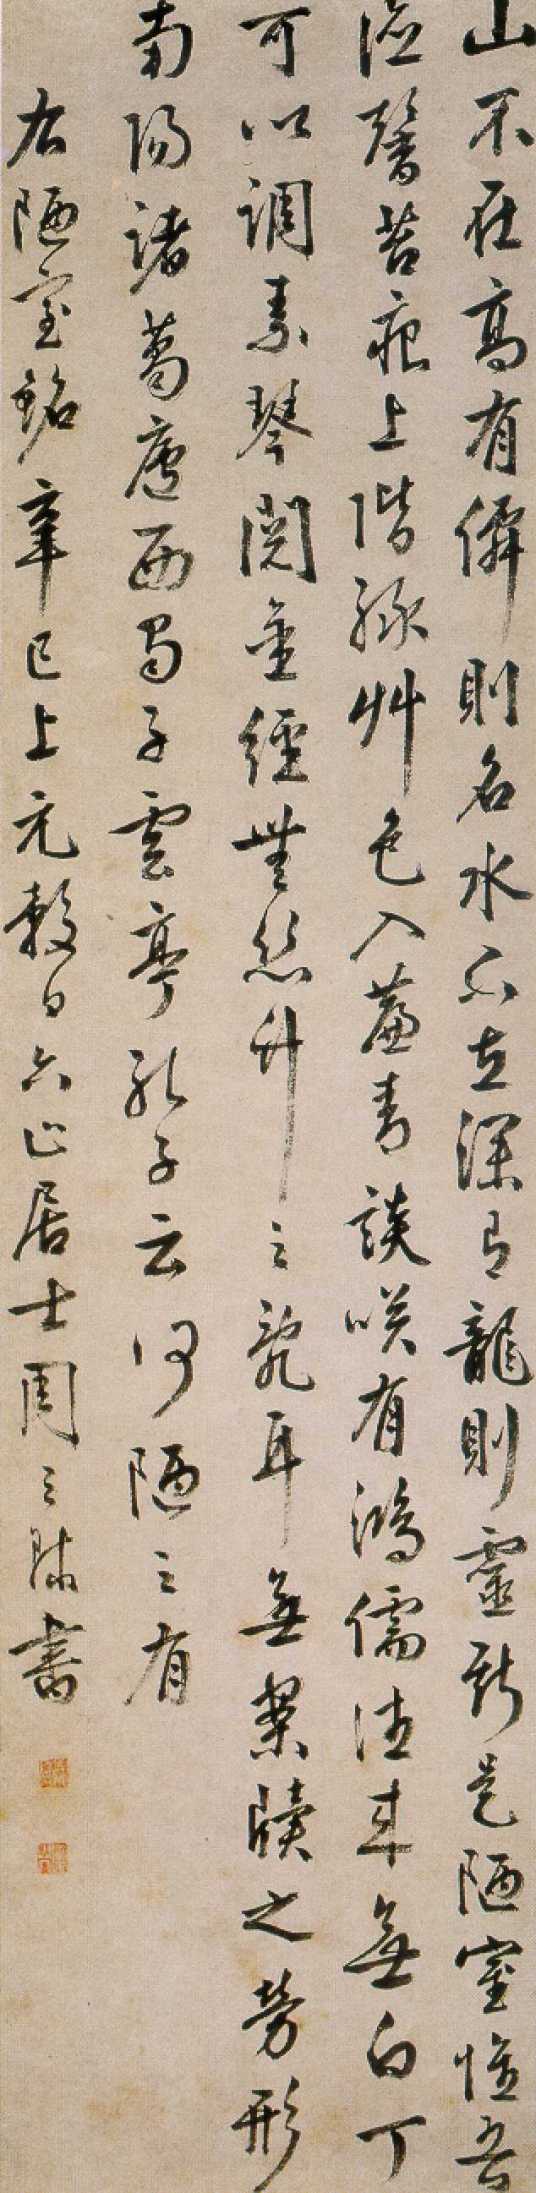 山不在高有僊則名水不在深有龍則靈斯是陋室惟吾
德馨苔痕上階綠艸色入簾青談笑有鴻儒往來無白丁
可以調素琴閱金經無絲竹之亂耳無案牘之勞形
南陽諸葛廬西蜀子雲亭孔子云何陋之有
右陋室銘辛巳上元穀日六止居士周之 書